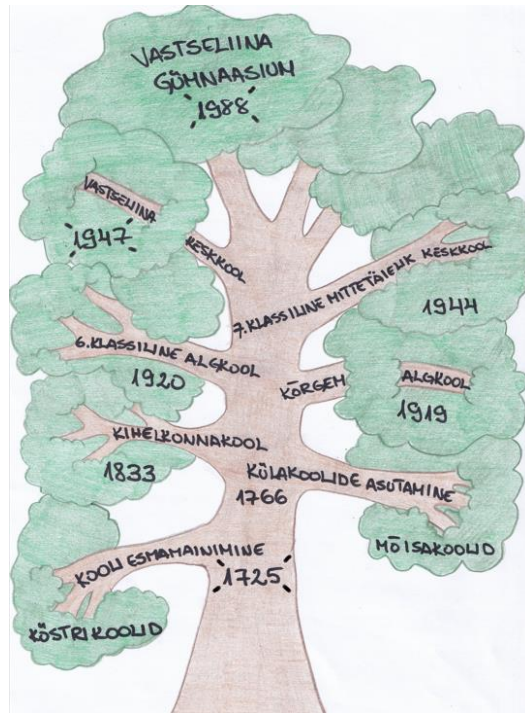 VASTSELIINA
GÜMNAASIUM
1988
VASTSELIINA
KESKKOOL
1947
7.KLASSILINE MITTETÄIELIK KESKKOOL
1944
6.KLASSILINE ALGKOOL
1920
KÕRGEM ALGKOOL
1919
KIHELKONNAKOOL
1833
KÜLAKOOLIDE ASUTAMINE
1766
MÕISAKOOLID
KOOLI ESMAMAINIMINE
1725
KÖSTRIKOOLID